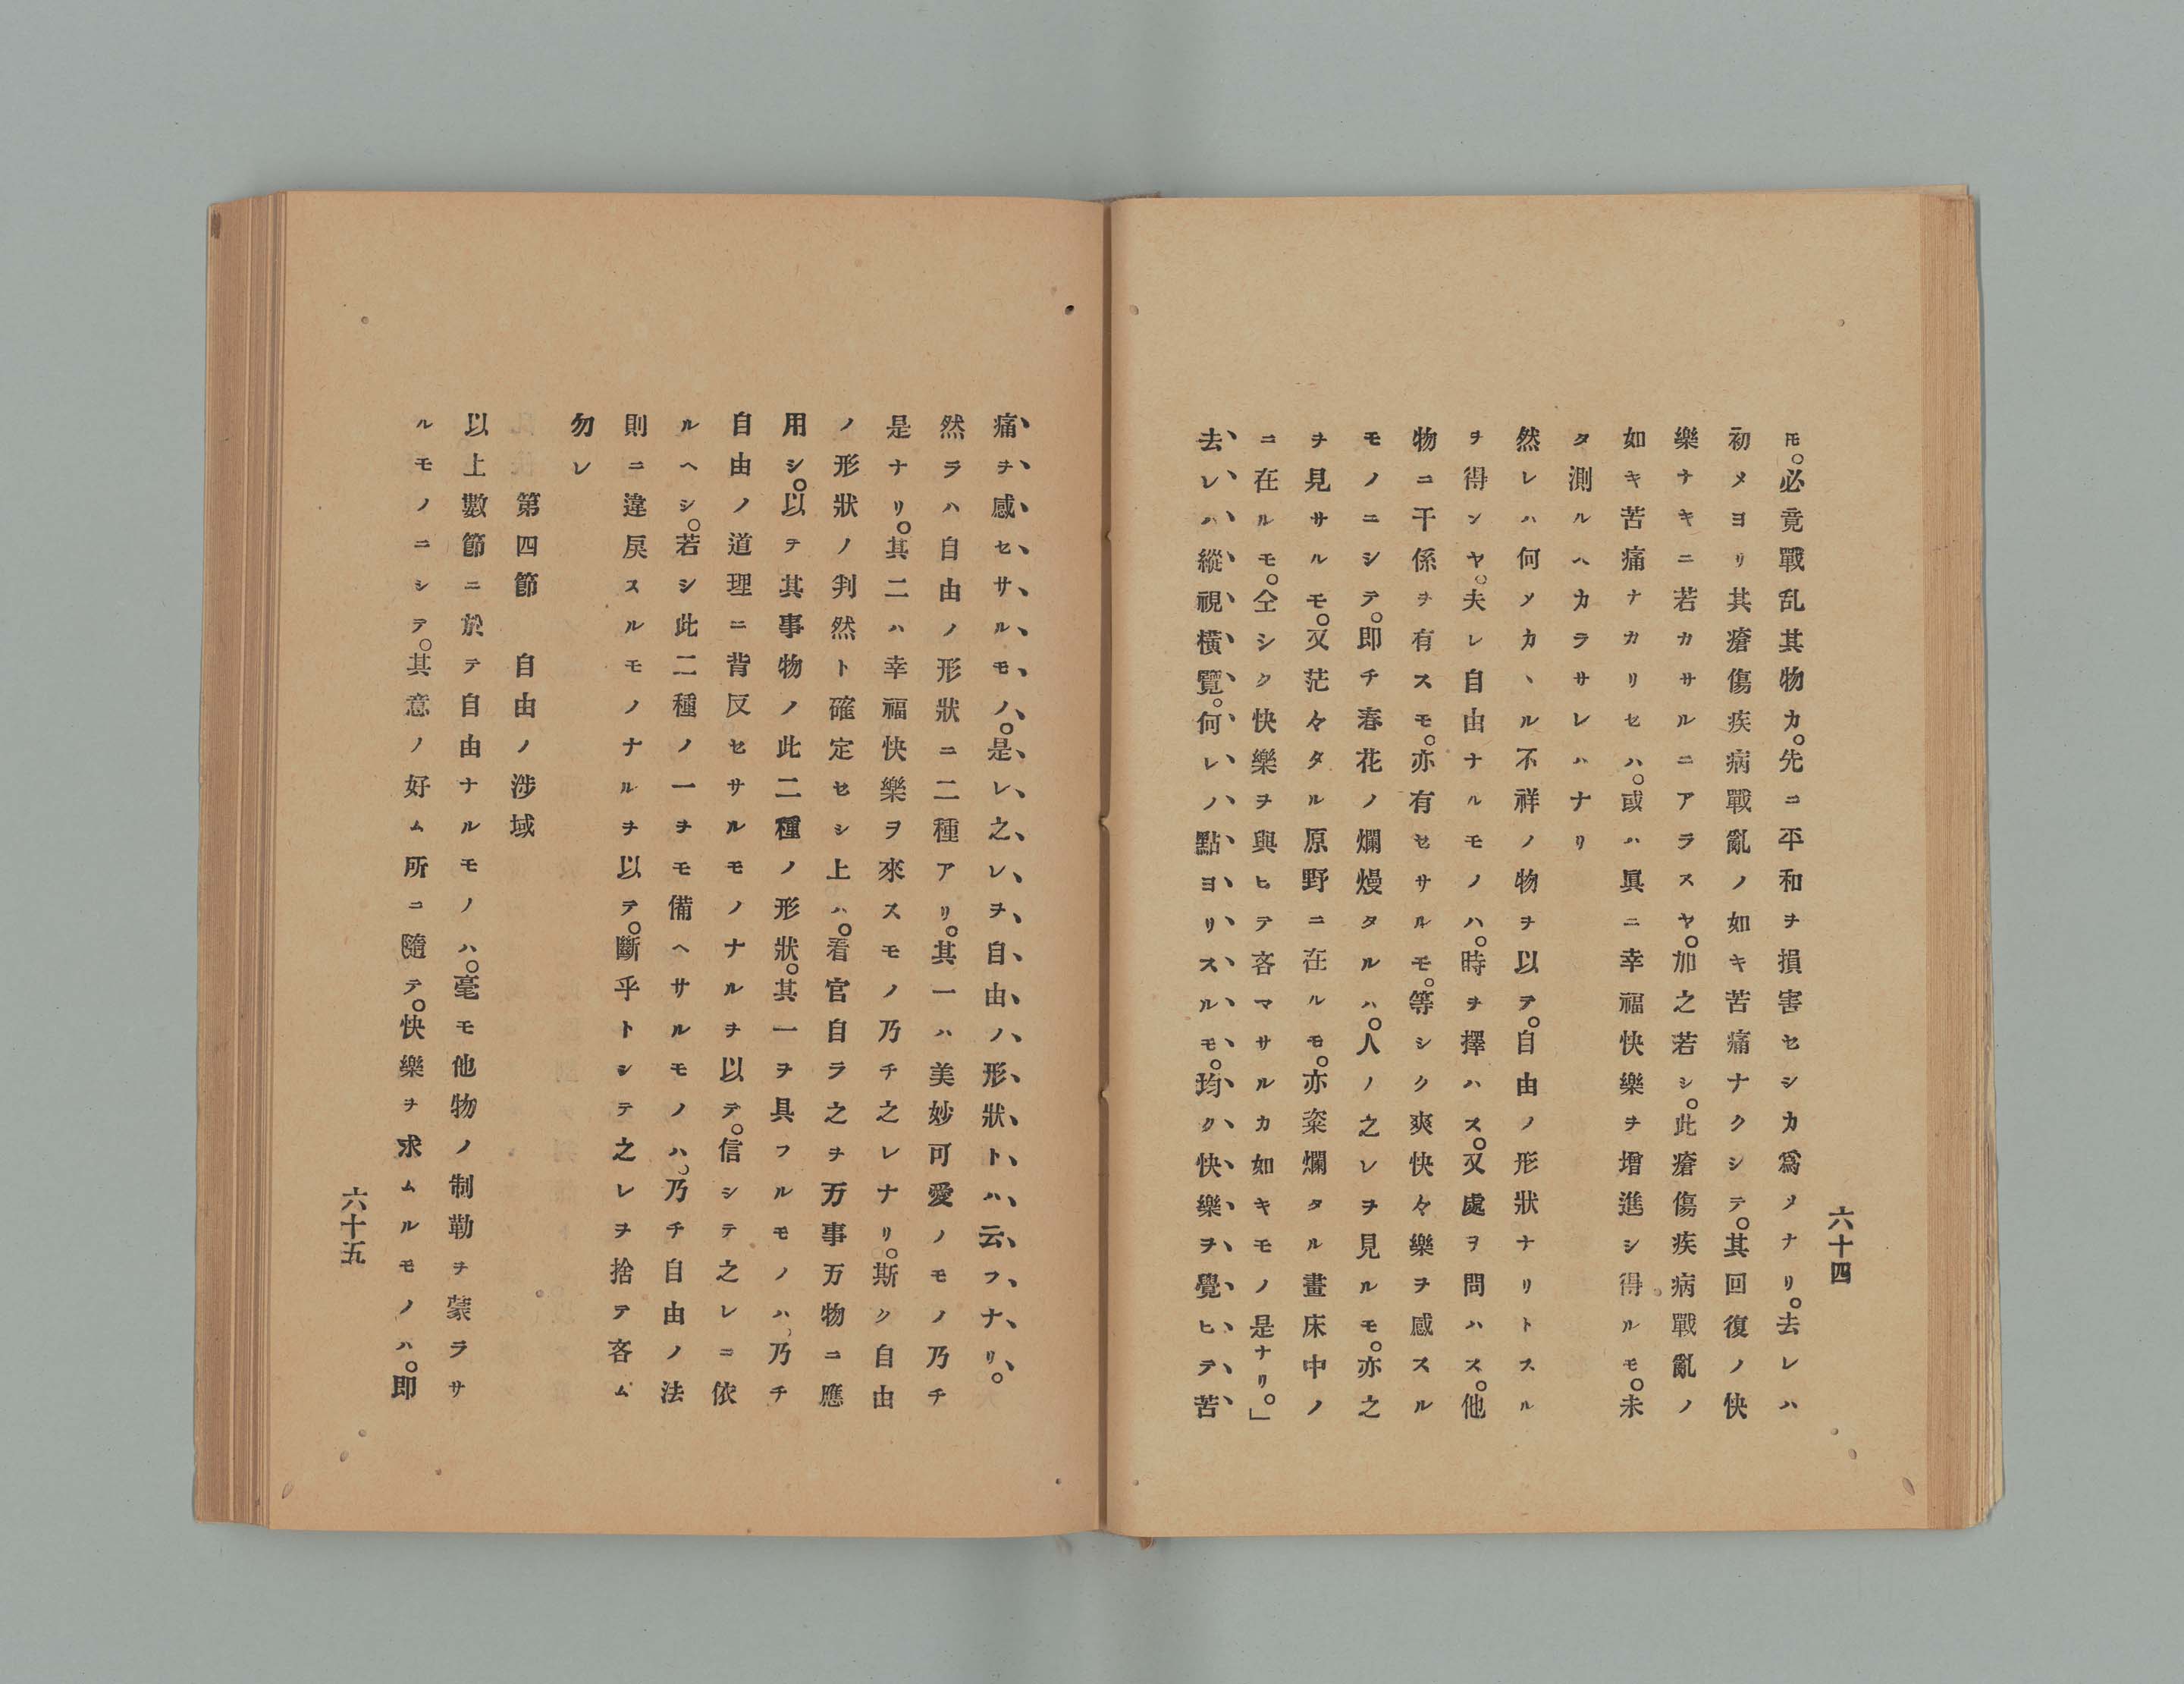 六十四
𪜈。必竟戰乱其物カ。先ニ平和ヲ損害セシカ爲メナリ。去レハ
初メヨリ其瘡傷疾病戰亂ノ如キ苦痛ナクシテ。其回復ノ快
樂ナキニ若カサルニアラスヤ。加之若シ。此瘡傷疾病戰亂ノ
如キ苦痛ナカリセハ。或ハ眞ニ幸福快樂ヲ增進シ得ルモ。未
タ測ルヘカラサレハナリ
然レハ何メカヽル不祥ノ物ヲ以テ。自由ノ形狀ナリトスル
ヲ得ンヤ。夫レ自由ナルモノハ。時ヲ擇ハス。又處ヲ問ハス。他
物ニ干係ヲ有スモ。亦有セサルモ。等シク爽快々樂ヲ感スル
モノニシテ。即チ春花ノ爛熳タルハ。人ノ之レヲ見ルモ。亦之
ヲ見サルモ。又茫々タル原野ニ在ルモ。亦粲爛タル畫床中ノ
ニ在ルモ。仝シク快樂ヲ與ヒテ吝マサルカ如キモノ是ナリ。」
去レハ縱視橫覽。何レノ點ヨリスルモ。均ク快樂ヲ覺ヒテ苦
痛ヲ感セサルモノ。是レ之レヲ自由ノ形狀トハ云フナリ。
然ラハ自由ノ形狀ニ二種アリ。其一ハ美妙可愛ノモノ乃チ
是ナリ。其二ハ幸福快樂ヲ來スモノ乃チ之レナリ。斯ク自由
ノ形狀ノ判然ト確定セシ上ハ。看官自ラ之ヲ万事万物ニ應
用シ。以テ其事物ノ此二種ノ形狀。其一ヲ具フルモノハ。乃チ
自由ノ道理ニ背反セサルモノナルヲ以テ。信シテ之レニ依
ルヘシ。若シ此二種ノ一ヲモ備ヘサルモノハ。乃チ自由ノ法
則ニ違戾スルモノナルヲ以テ。斷乎トシテ之レヲ捨テ吝ム
勿レ
第四節　自由ノ涉域
以上數節ニ於テ自由ナルモノハ。毫モ他物ノ制勒ヲ蒙ラサ
ルモノニシテ。其意ノ好ム所ニ隨テ。快樂ヲ求ムルモノハ。即
六十五